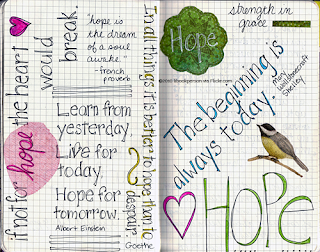 if not for hope the heart
would
break.
"hope is
the dream
of a soul
awake."
-french
proverb
Learn from
yesterday,
Live for
today.
Hope for
tomorrow.
Albert Einstein
In all things it is better to hope than to
despair.
Goethe
Hope
strength in
grace
The beginning is
always today.
Mary
Wollstonecraft
Shelley
HOPE